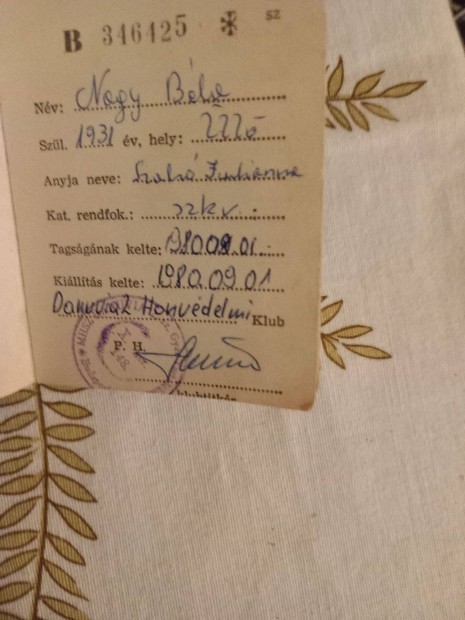 B 346425 ✻ sz
Név: Nagy Béla
Szül. 1931 év, hely: Üllő
Anyja neve: Szabó Julianna
Kat. rendfok.: szkv.
Tagságának kelte: 1980.09.01.
Kiállítás kelte: 1980.09.01
Danuvia 2 Honvédelmi Klub
P. H.